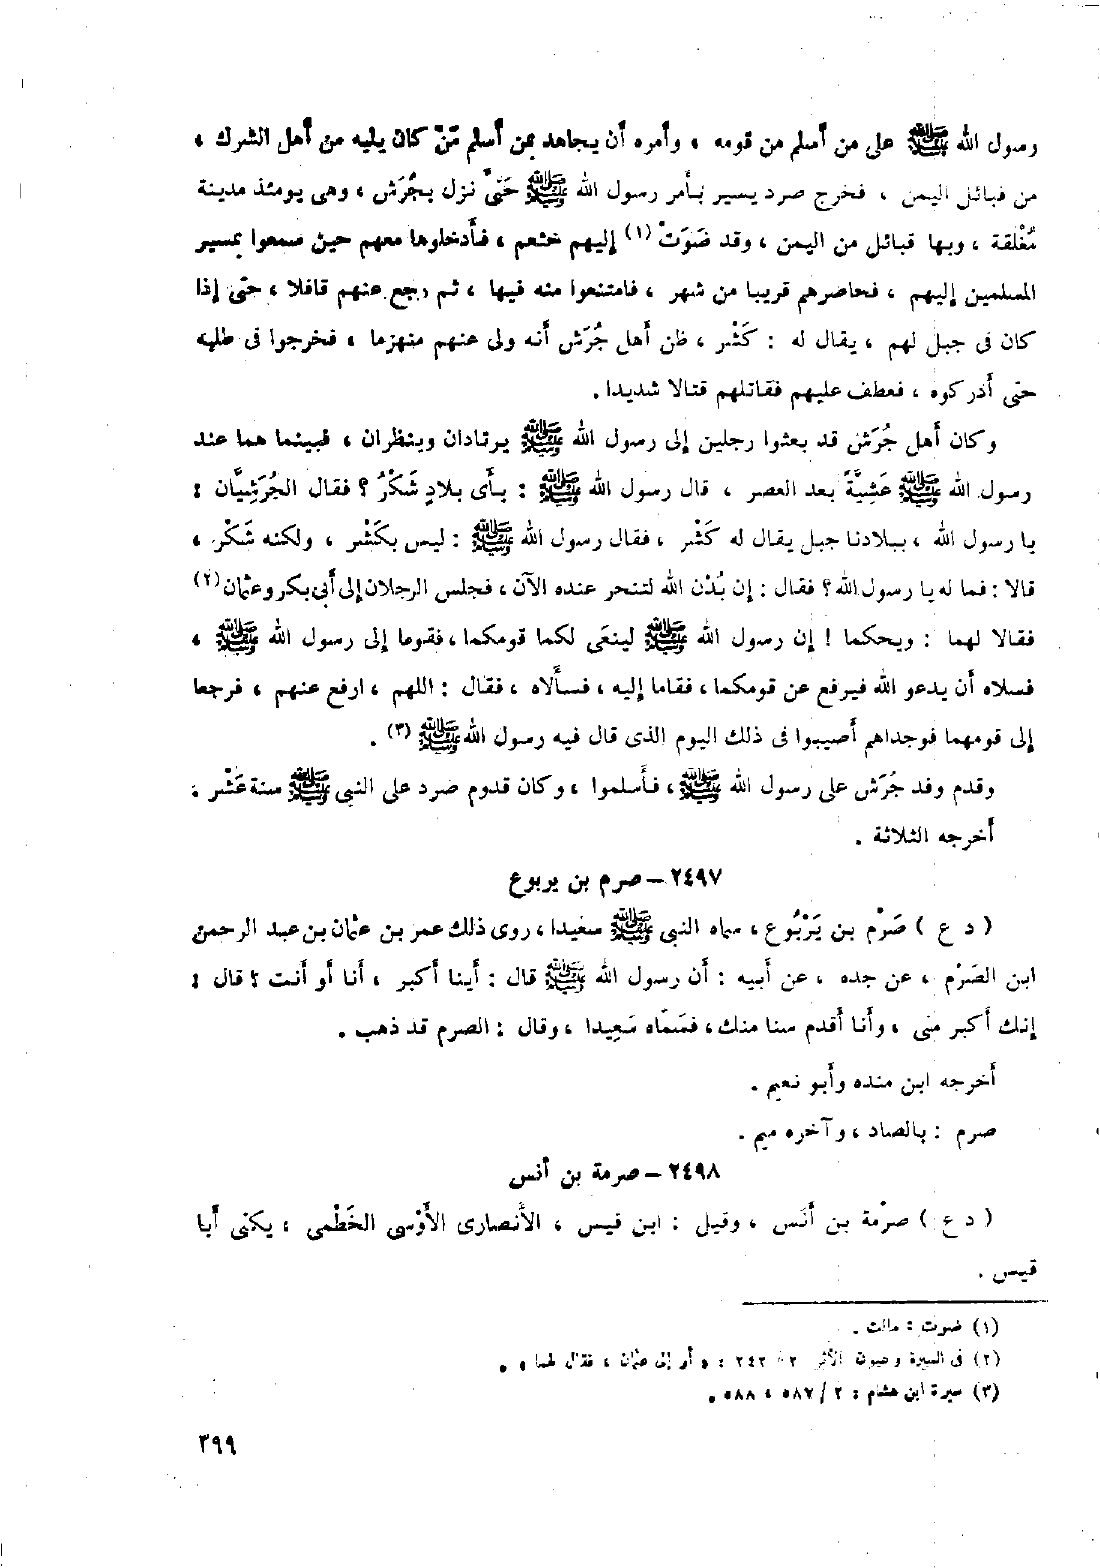 رسول الله ﷺ على من أسلم من قومه ، وأمره أن يجاهد بمن أسلم مَنْ كان يليه من أهل الشرك ،
من قبائل اليمن ، فخرج صرد يسير بأمر رسول الله ﷺ حَتّى نزل بجُرَش ، وهى يومئذ مدينة
مُغْلقة ، وبها قبائل من اليمن ، وقد ضَوَتْ (١) إليهم خثعم ، فأدخلوها معهم حين سمعوا بمسير
المسلمين إليهم ، فحاصرهم قريبا من شهر ، فامتنعوا منه فيها ، ثم رجع عنهم قافلا ، حتّى إذا
كان فى جبل لهم ، يقال له : كَشْر ، ظن أهل جُرَش أنه ولى عنهم منهزما ، فخرجوا فى طلبه
حتى أدركوه ، فعطف عليهم فقاتلهم قتالا شديدا .
وكان أهل جُرَش قد بعثوا رجلين إلى رسول الله ﷺ يرتادان وينظران ، فبينما هما عند
رسول الله ﷺ عَشِيَّةً بعد العصر ، قال رسول الله ﷺ : بأى بلادٍ شَكْرُ ؟ فقال الجُرَشِيَّان :
يا رسول الله ، ببلادنا جبل يقال له كَشْر ، فقال رسول الله ﷺ : ليس بكَشْر ، ولكنه شَكْر ،
قالا : فما له يا رسول الله ؟ فقال : إن بُدْن الله لتنحر عنده الآن ، فجلس الرجلان إلى أبى بكر وعثمان (٢)
فقالا لهما : ويحكما ! إن رسول الله ﷺ لينعَى لكما قومكما ، فقوما إلى رسول الله ﷺ ،
فسلاه أن يدعو الله فيرفع عن قومكما ، فقاما إليه ، فسألاه ، فقال : اللهم ، ارفع عنهم ، فرجعا
إلى قومهما فوجداهم أصيبوا فى ذلك اليوم الذى قال فيه رسول الله ﷺ (٣) .
وقدم وفد جُرَش على رسول الله ﷺ ، فأسلموا ، وكان قدوم صرد على النبى ﷺ سنة عَشْر .
أخرجه الثلاثة .
٢٤٩٧ – صرم بن يربوع
( د ع ) صَرْم بن يَرْبُوع ، سماه النبى ﷺ سعيدا ، روى ذلك عمر بن عثمان بن عبد الرحمن
ابن الصَرْم ، عن جده ، عن أبيه : أن رسول الله ﷺ قال : أينا أكبر ، أنا أو أنت ؟ قال :
إنك أكبر منى ، وأنا أقدم سنا منك ، فسَمّاه سَعِيدا ، وقال : الصرم قد ذهب .
أخرجه ابن منده وأبو نعيم .
صرم : بالصاد ، وآخره ميم .
٢٤٩٨ – صرمة بن أنس
( د ع ) صرْمة بن أنَس ، وقيل : ابن قيس ، الأنصارى الأَوْسى الخَطْمى ، يكنى أبا
قيس .
(١) ضوت : مالت .
(٢) فى السيرة وعيون الأثر ٢ / ٢٤٢ : « أو إلى عثمان ، فقال لهما » .
(٣) سيرة ابن هشام : ٢ / ٥٨٧ ، ٥٨٨ .
٣٩٩